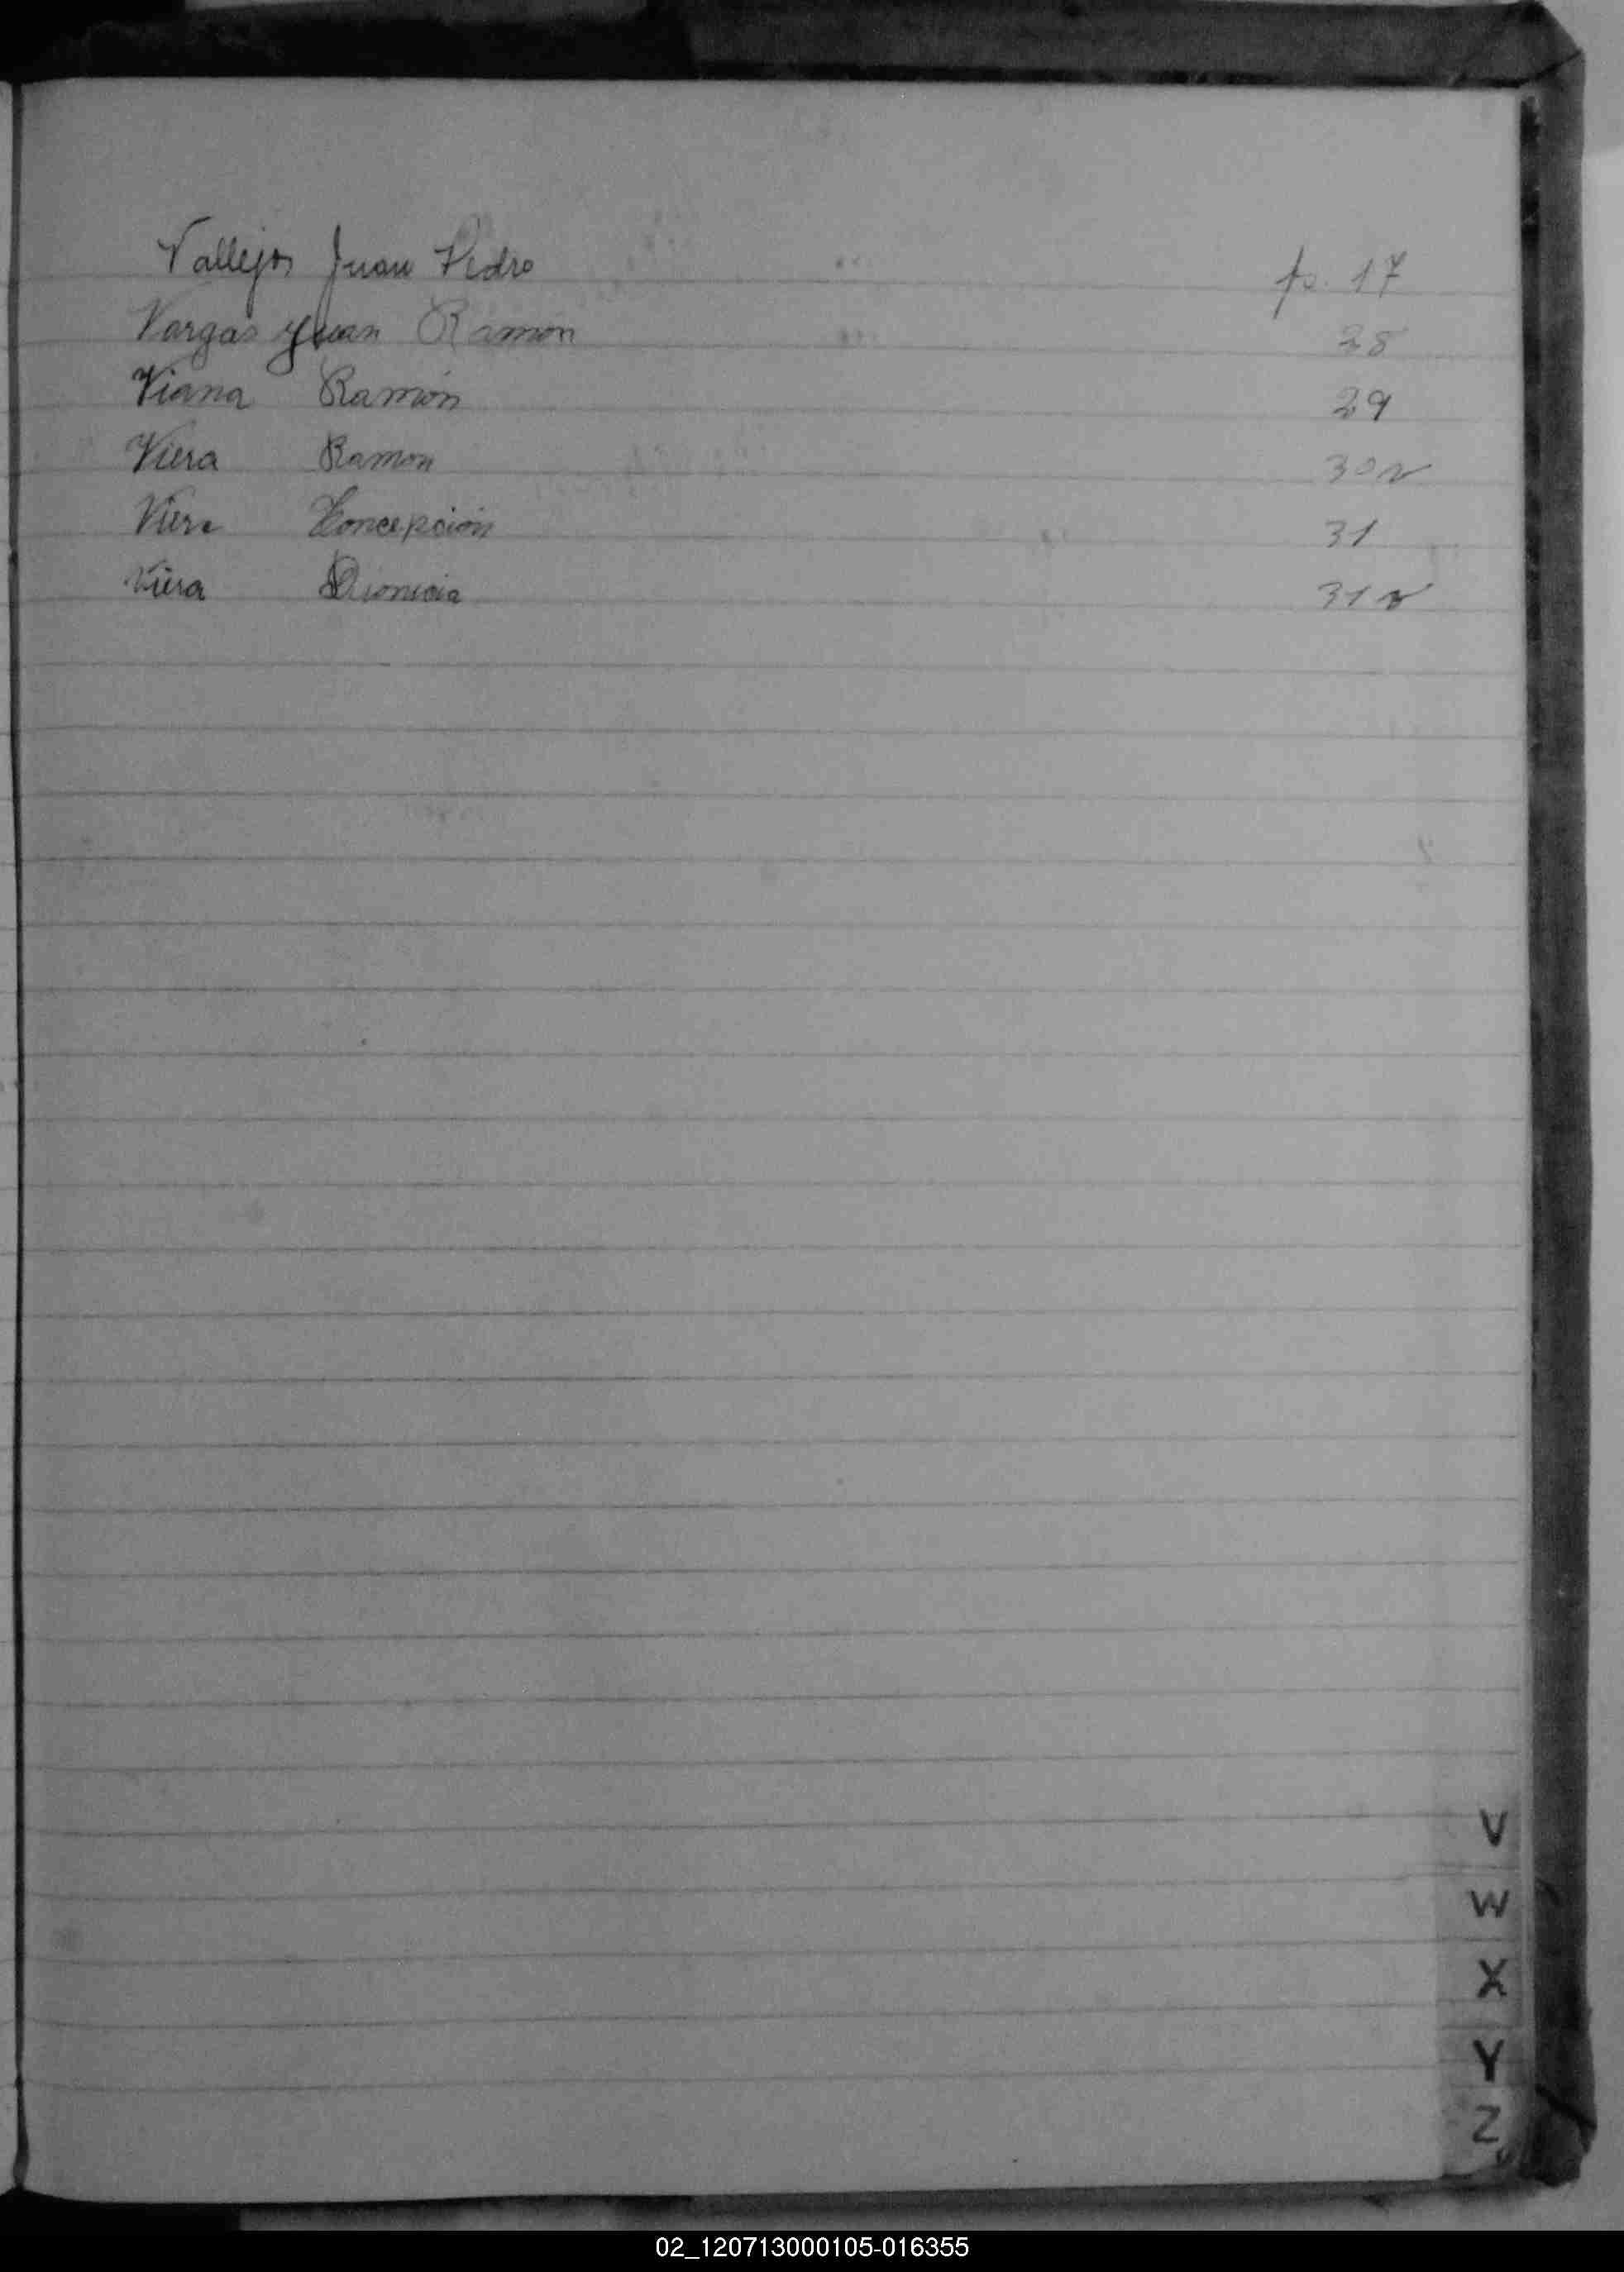 Vallejos Juan Pedro fs. 17
Vargas Juan Ramon 28
Viana Ramón 29
Viera Ramon 30 v
Viera Concepción 31
Viera Dionicia 31 v
V
W
X
Y
Z
02_120713000105-016355